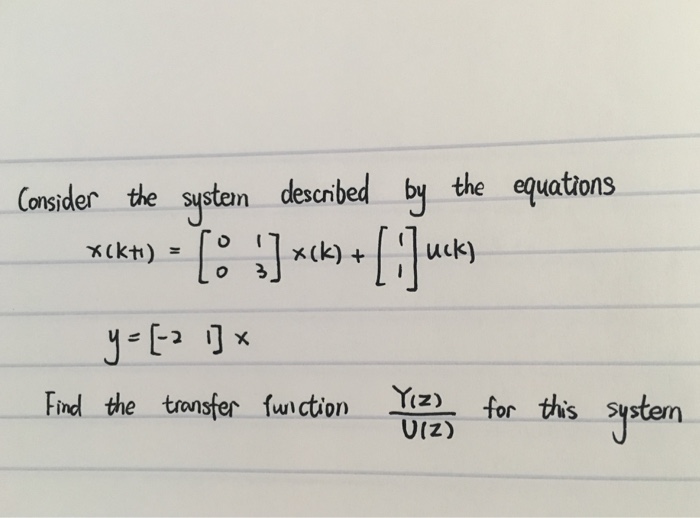 Consider the system described by the equations
x(k+1) = [0 1; 0 3] x(k) + [1; 1] u(k)
y = [-2 1] x
Find the transfer function Y(z)/U(z) for this system